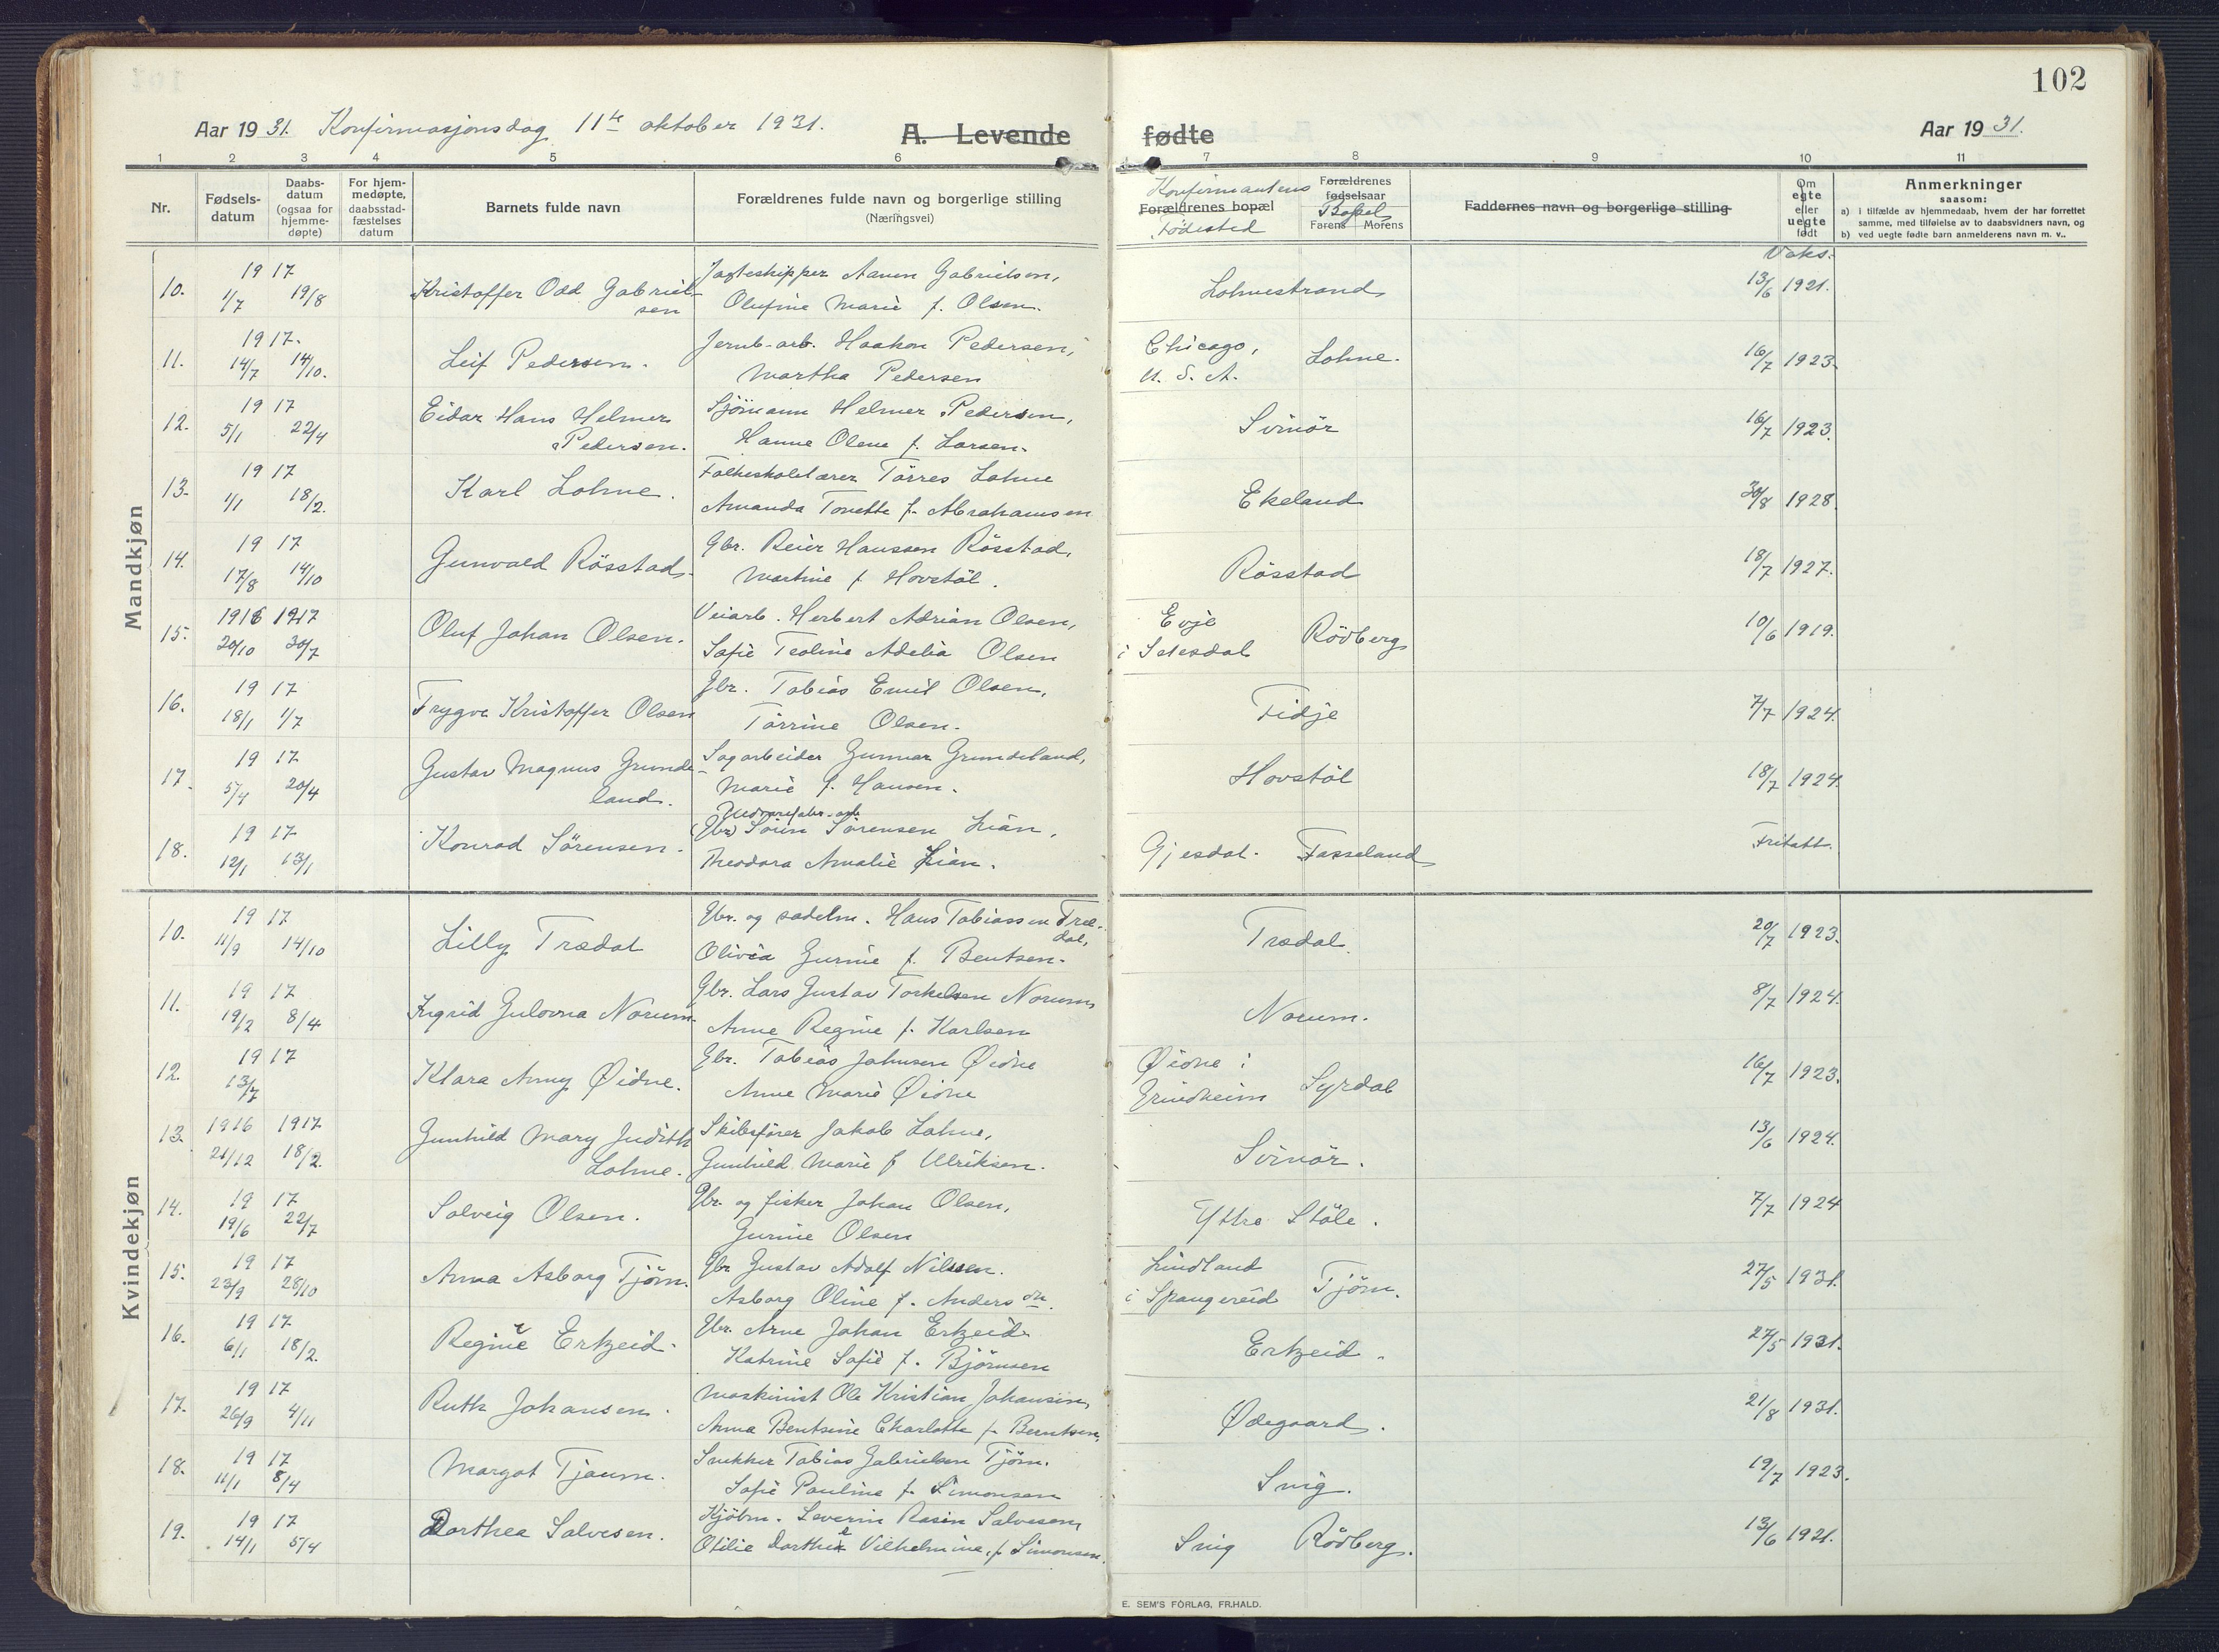 102
Aar 19 31. Konfirmasjonsdag 11te oktober 1931. A. Levende fødte Aar 19 31.
1 2 3 4 5 6 7 8 9 10 11
Nr.
Fødsels-
datum
Daabs-
datum
(ogsaa for
hjemme-
døpte)
For hjem-
medøpte,
daabsstad-
fæstelses
datum
Barnets fulde navn
Forældrenes fulde navn og borgerlige stilling
(Næringsvei)
Konfirmantens
Forældrenes bopæl
Fødested
Forældrenes
fødselsaar
Bopæl
Farens Morens
Faddernes navn og borgerlige stilling
Om
egte
eller
uegte
født
Anmerkninger
saasom:
a) i tilfælde av hjemmedaab, hvem der har forrettet
samme, med tilføielse av to daabsvidners navn, og
b) ved uegte fødte barn anmelderens navn m. v..
Mandkjøn
Vaks.
10. 19 17 1/7 19/8 Kristoffer Odd Gabriel-
sen
Jagteskipper Aanen Gabrielsen,
Olufine Marie f. Olsen.
Lohnestrand 13/6 1921.
11. 19 17. 14/7 14/10. Leif Pedersen.
Jernb-arb. Haakon Pedersen,
Martha Pedersen
Chicago,
U. S. A.
Lohne. 16/7 1923.
12. 19 17 5/1 22/4 Eidar Hans Helmer
Pedersen.
Sjömann Helmer Pedersen,
Hanne Olene f. Larsen.
Svinör 16/7 1923.
13. 19 17 1/1 18/2. Karl Lohne.
Folkeskolelærer Törres Lohne
Amanda Tonette f. Abrahamsen
Ekeland 30/8 1928.
14. 19 17 17/8 14/10 Gunvald Rösstad.
Gbr. Reier Hanssen Rösstad,
Martine f. Hovstöl.
Rösstad 18/7 1927.
15. 1916 1917 20/10 30/7 Oluf Johan Olsen.
Veiarb. Herbert Adrian Olsen,
Sofie Teoline Adelia Olsen
Evje
i Setesdal
Rödberg 10/6 1919.
16. 19 17 18/1 1/7 Trygve Kristoffer Olsen
Gbr. Tobias Emil Olsen,
Törrine Olsen.
Tidje 7/7 1924.
17. 19 17 5/4 20/4 Gustav Magnus Grunde-
land.
Sagarbeider Gunnar Grundeland,
Marie f. Hansen.
Hovstöl 18/7 1924.
18. 19 17 12/1 13/1 Konrad Sörensen.
(Gbr) Sören Sörensen Lian,
Theodora Amalie Lian.
Gjesdal. Fasseland Fritatt.
Kvindekjøn
10. 19 17 11/9 14/10 Lilly Trædal
Gbr. og sadelm. Hans Tobiassen Træ-
dal,
Olivia Gurine f. Bentsen.
Trædal. 20/7 1923.
11. 19 17 19/2 8/4 Ingrid Gulovna Norum.
Gbr. Lars Gustav Torkelsen Norum,
Anne Regine f. Karlsen
Norum. 8/7 1924.
12. 19 17 13/7 Klara Anny Øidne.
Gbr. Tobias Johnsen Øidne
Anne Marie Øidne
Øidne i
Grindheim
Syrdal 16/7 1923.
13. 1916 1917 21/12 18/2. Gunhild Mary Judith
Lohne.
Skibsfører Jakob Lohne,
Gunhild Marie f Ulriksen.
Svinör. 13/6 1924.
14. 19 17 19/6 22/7 Solveig Olsen.
Gbr. og fisker Johan Olsen,
Gurine Olsen
Yttre Stöle. 7/7 1924
15. 19 17 23/9 28/10 Anna Asborg Tjörn.
Gbr Gustav Adolf Nilssen.
Asborg Oline f. Andersen.
Lindland
i Spangereid
Tjörn. 27/5 1931.
16. 19 17 6/1 18/2. Regine Erkeid.
Gbr. Arne Johan Erkeid.
Katrine Sofie f. Björnsen
Erkeid. 27/5 1931.
17. 19 17 26/9 4/11 Ruth Johansen.
Maskinist Ole Kristian Johansen,
Anna Bentsine Charlotte f. Berntsen,
Ødegaard. 21/8 1931.
18. 19 17 11/1 8/4 Margot Tjaum.
Snekker Tobias Gabrielsen Tjörn.
Sofie Pauline f. Simonsen
Snig. 19/7 1923.
19. 19 17 14/1 5/4 Dorthea Salvesen.
Kjöbm. Severin Rasin Salvesen,
Otilie Dorthe Vilhelmine, f. Simonsen.
Snig Rödberg. 13/6 1921.
E. SEM'S FORLAG, FR.HALD.